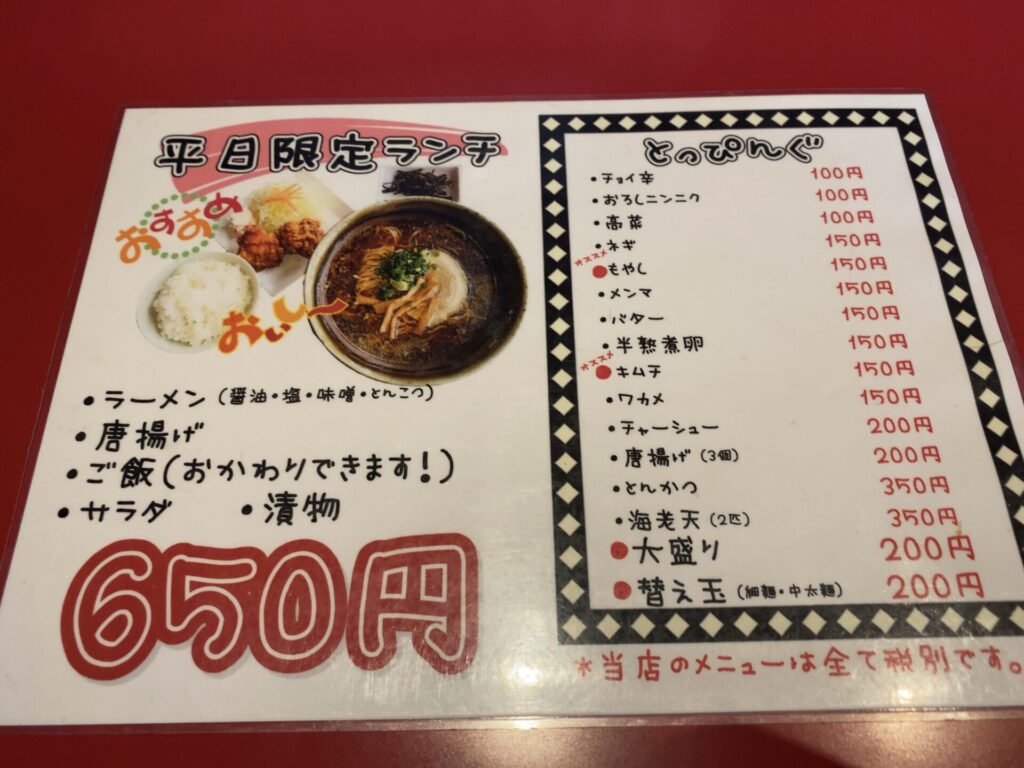 平日限定ランチ
おすすめ
おいし〜
・ラーメン（醤油・塩・味噌・とんこつ）
・唐揚げ
・ご飯（おかわりできます！）
・サラダ ・漬物
650円
とっぴんぐ
・チョイ辛 100円
・おろしニンニク 100円
・高菜 100円
・ネギ 150円
オススメ
●もやし 150円
・メンマ 150円
・バター 150円
・半熟煮卵 150円
オススメ
●キムチ 150円
・ワカメ 150円
・チャーシュー 200円
・唐揚げ（3個） 200円
・とんかつ 350円
・海老天（2匹） 350円
●大盛り 200円
●替え玉（細麺・中太麺） 200円
＊当店のメニューは全て税別です。